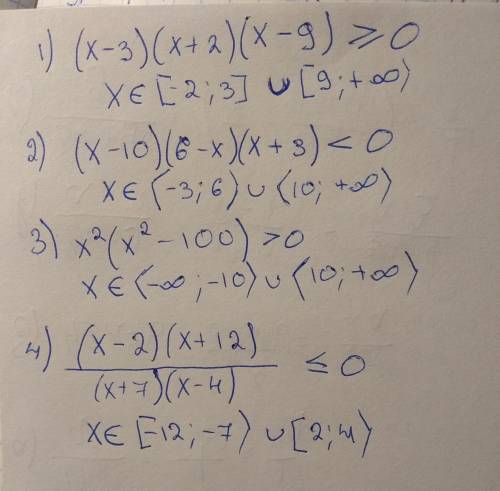 1) (x-3)(x+2)(x-9) ≥ 0
x∈[-2;3] ∪ [9;+∞)
2) (x-10)(6-x)(x+3) < 0
x∈(-3;6) ∪ (10;+∞)
3) x²(x²-100) > 0
x∈(-∞;-10) ∪ (10;+∞)
4) (x-2)(x+12)
(x+7)(x-4) ≤ 0
x∈[-12;-7) ∪ [2;4)